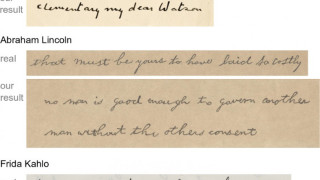 our
result
elementary my dear Watson
Abraham Lincoln
real
that must be yours to have laid so costly
our
result
no man is good enough to govern another
man without the other consent
Frida Kahlo